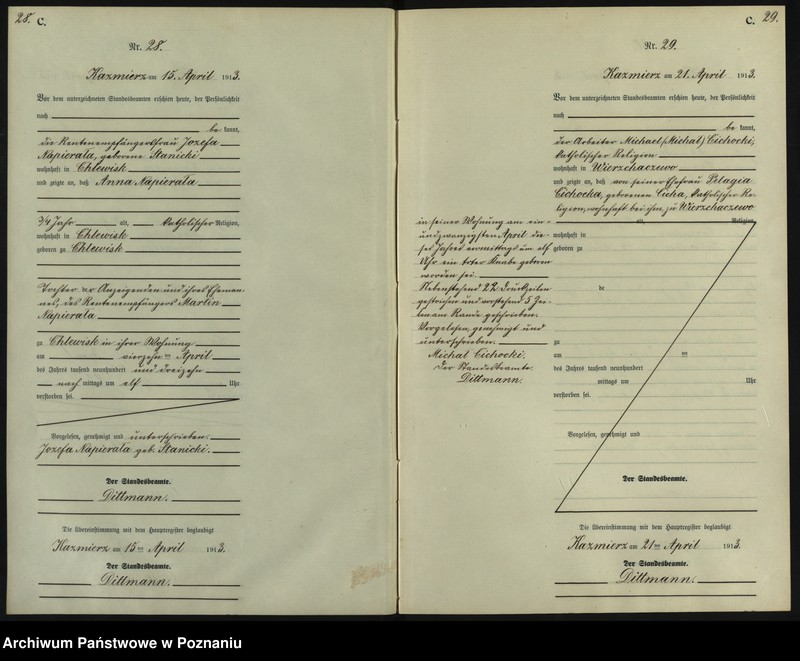 28. C.
Nr. 28.
Kazmierz am 15. April 1913.
Vor dem unterzeichneten Standesbeamten erschien heute, der Persönlichkeit
nach
be kannt,
die Rentenempfängersfrau Jozefa
Napierala, geborene Stanicki
wohnhaft in Chlewisk
und zeigte an, daß Anna Napierala
3/4 Jahr alt, katholischer Religion,
wohnhaft in Chlewisk
geboren zu Chlewisk
Tochter der Anzeigenden und ihres Eheman-
nes, des Rentenempfängers Martin
Napierala
zu Chlewisk in ihrer Wohnung
am vierzehn ten April
des Jahres tausend neunhundert und dreizehn
nach mittags um elf Uhr
verstorben sei.
Vorgelesen, genehmigt und unterschrieben.
Jozefa Napierala geb. Stanicki.
Der Standesbeamte.
Dittmann.
Die Übereinstimmung mit dem Hauptregister beglaubigt
Kazmierz am 15 ten April 1913.
Der Standesbeamte.
Dittmann.
C. 29.
Nr. 29.
Kazmierz am 21. April 1913.
Vor dem unterzeichneten Standesbeamten erschien heute, der Persönlichkeit
nach
be kannt,
der Arbeiter Michael (Michał) Cichocki,
katholischer Religion
wohnhaft in Wierzchaczewo
und zeigte an, daß von seiner Ehefrau Pelagia
Cichocka, geborenen Cicha, katholischer Re-
ligion, wohnhaft bei ihm zu Wierzchaczewo
alt, Religion,
wohnhaft in
geboren zu
de
zu
am ten
des Jahres tausend neunhundert
mittags um Uhr
verstorben sei.
Vorgelesen, genehmigt und
in seiner Wohnung am ein-
undzwanzigsten April die-
ses Jahres vormittags um elf
Uhr ein toter Knabe geboren
worden sei.
Nebenstehend 22 Druckzeilen
gestrichen und vorstehend 5 Zei-
len am Rande geschrieben.
Vorgelesen, genehmigt und
unterschrieben.
Michał Cichocki.
Der Standesbeamte.
Dittmann.
Der Standesbeamte.
Die Übereinstimmung mit dem Hauptregister beglaubigt
Kazmierz am 21 ten April 1913.
Der Standesbeamte.
Dittmann.
Archiwum Państwowe w Poznaniu